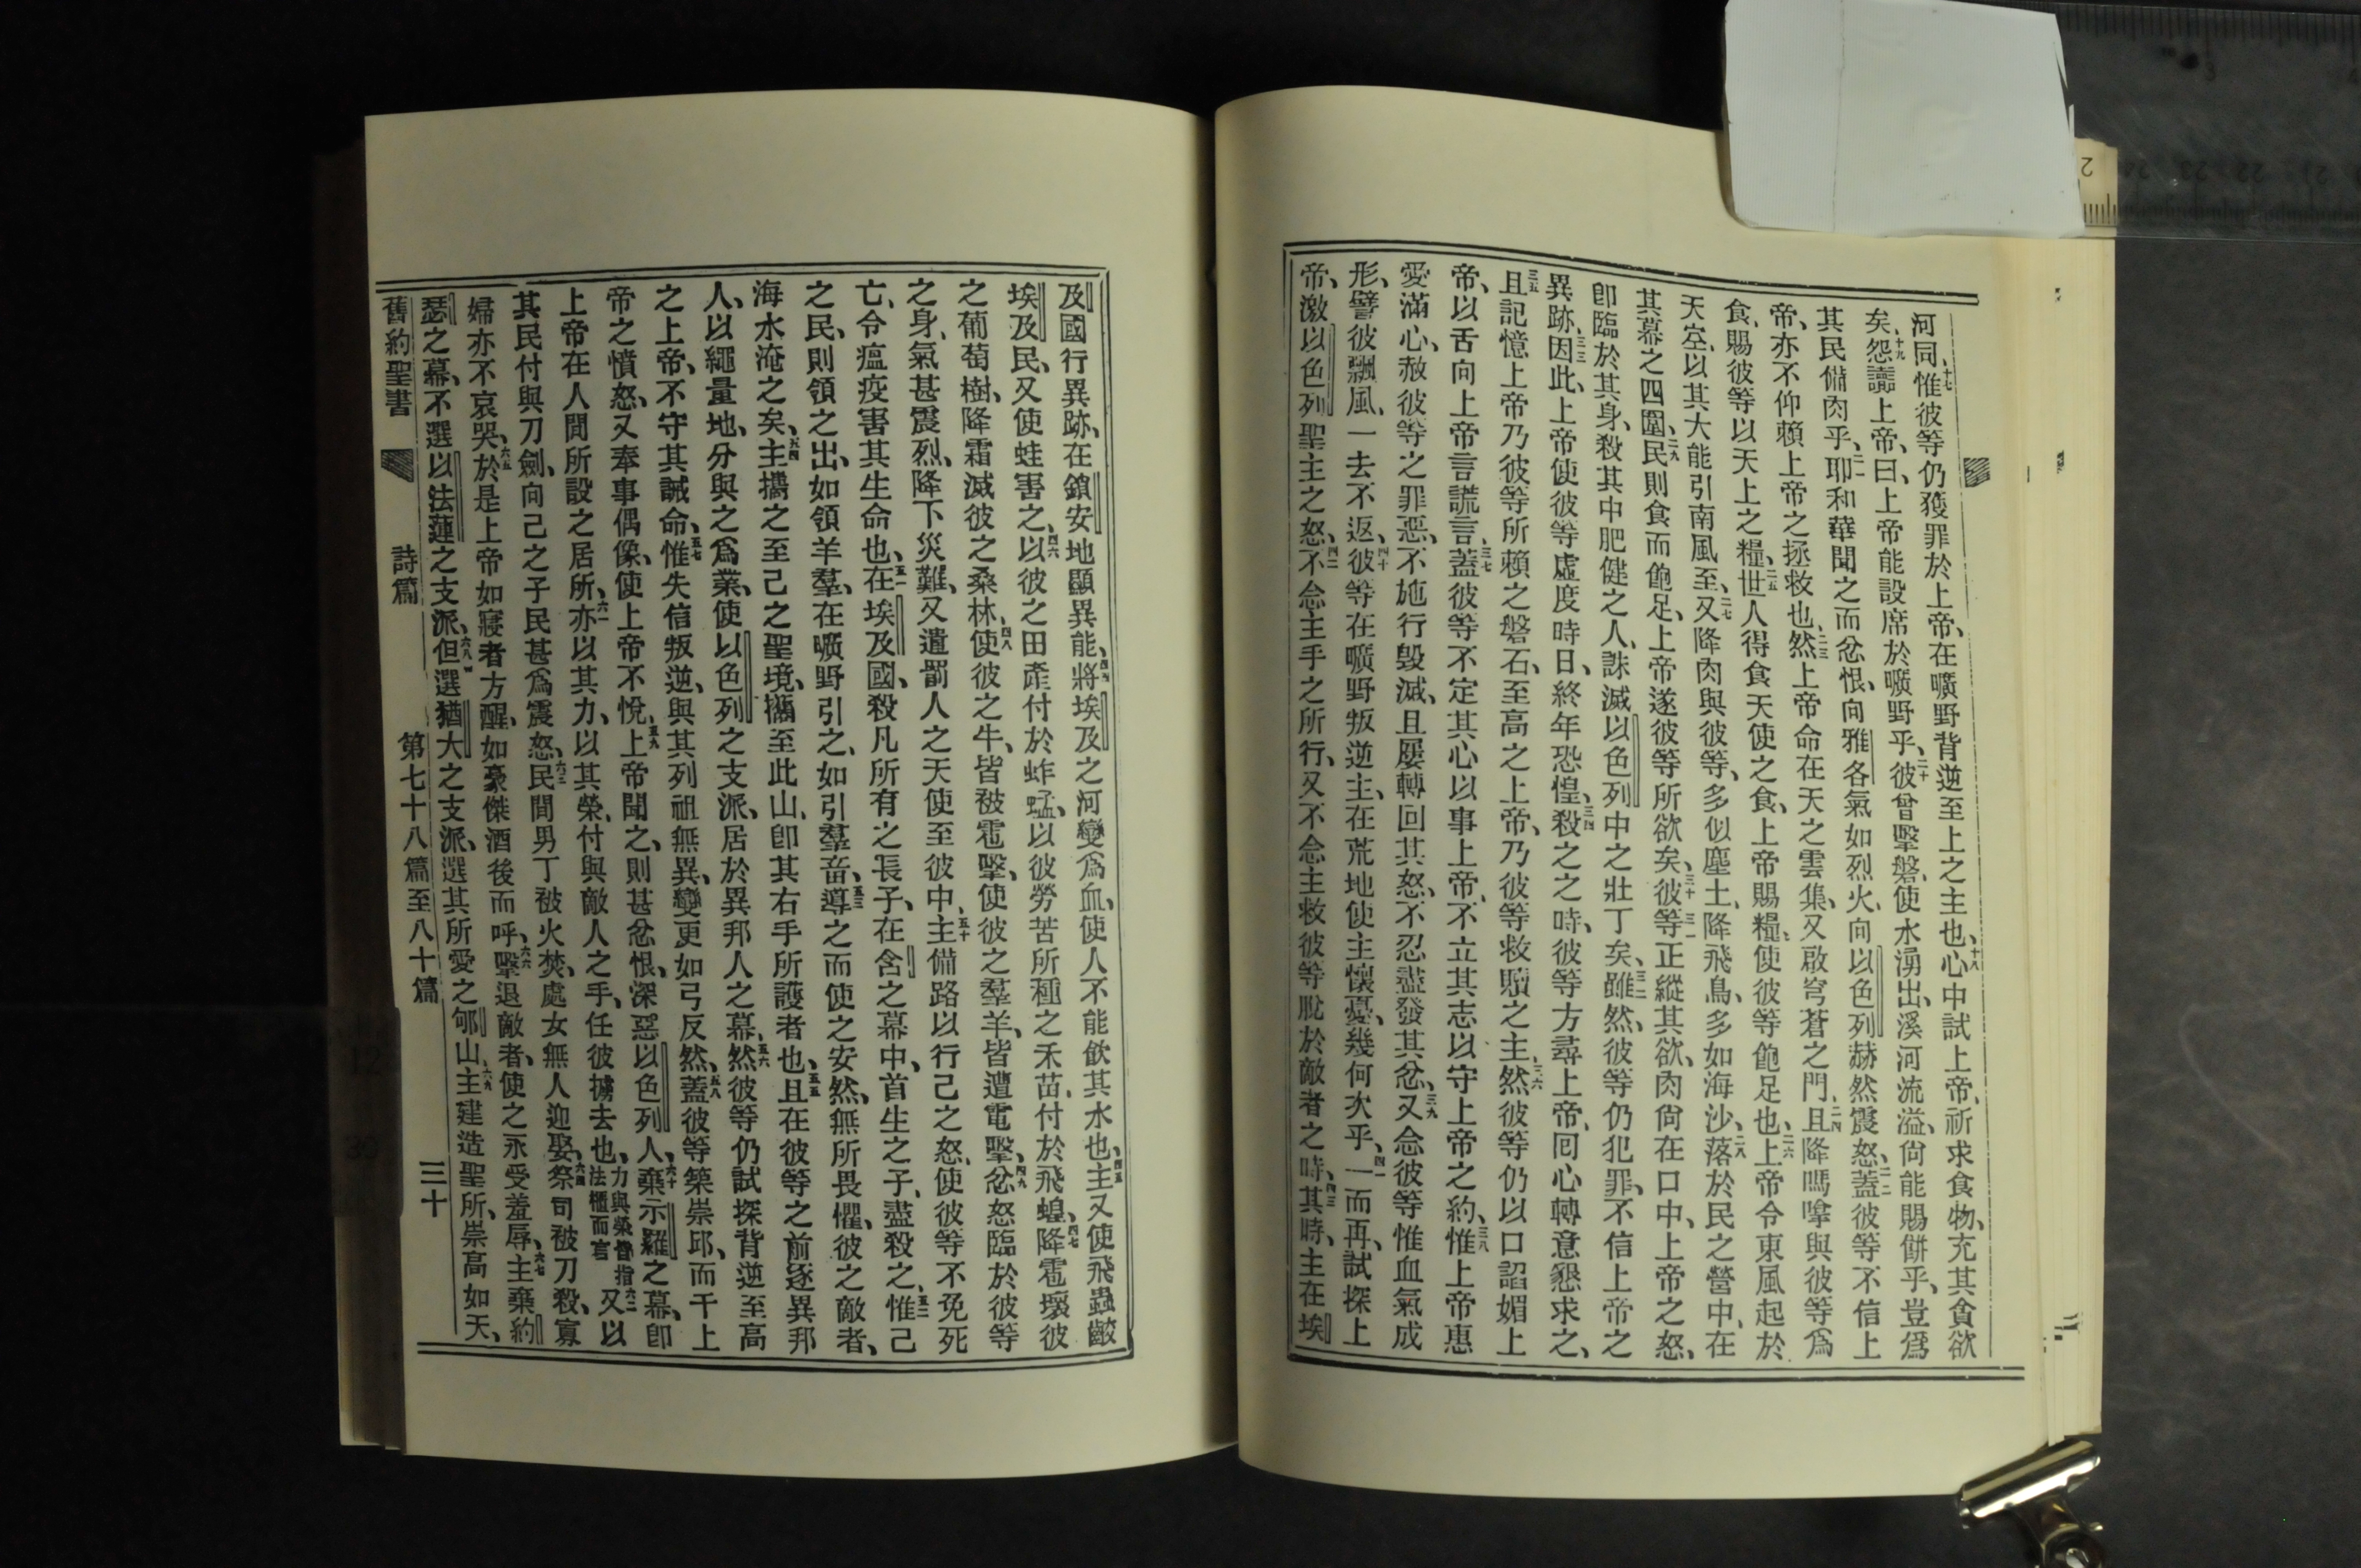 河同、十七惟彼等仍獲罪於上帝、在曠野背逆至上之主也、十八心中試上帝、祈求食物、充其貪欲
矣、十九怨讟上帝、曰、上帝能設席於曠野乎、二十彼曾擊磐、使水湧出、溪河流溢、尙能賜餅乎、豈爲
其民備肉乎、二一耶和華聞之而忿恨、向雅各氣如烈火、向以色列赫然震怒、二二蓋彼等不信上
帝、亦不仰賴上帝之拯救也、二三然上帝命在天之雲集、又啟穹蒼之門、二四且降嗎嗱與彼等爲
食、賜彼等以天上之糧、二五世人得食天使之食、上帝賜糧、使彼等飽足也、二六上帝令東風起於
天空、以其大能引南風至、二七又降肉與彼等、多似塵土、降飛鳥、多如海沙、二八落於民之營中、在
其幕之四圍、二九民則食而飽足、上帝遂彼等所欲矣、三十彼等正縱其欲、肉尙在口中、三一上帝之怒、
卽臨於其身、殺其中肥健之人、誅滅以色列中之壯丁矣、三二雖然、彼等仍犯罪、不信上帝之
異跡、三三因此、上帝使彼等虛度時日、終年恐惶、三四殺之之時、彼等方尋上帝、囘心轉意懇求之、
三五且記憶上帝乃彼等所賴之磐石、至高之上帝、乃彼等救贖之主、三六然彼等仍以口諂媚上
帝、以舌向上帝言謊言、三七蓋彼等不定其心以事上帝、不立其志以守上帝之約、三八惟上帝惠
愛滿心、赦彼等之罪惡、不施行毀滅、且屢轉回其怒、不忍盡發其忿、三九又念彼等惟血氣成
形、譬彼飄風、一去不返、四十彼等在曠野叛逆主、在荒地使主懷憂、幾何次乎、四一一而再、試探上
帝、激以色列聖主之怒、四二不念主手之所行、又不念主救彼等脫於敵者之時、四三其時、主在埃
及國行異跡、在鎖安地顯異能、四四將埃及之河變爲血、使人不能飲其水也、四五主又使飛蟲齩
埃及民、又使蛙害之、四六以彼之田產付於蚱蜢、以彼勞苦所種之禾苗、付於飛蝗、四七降雹壞彼
之葡萄樹、降霜滅彼之桑林、四八使彼之牛、皆被雹擊、使彼之羣羊、皆遭電擊、四九忿怒臨於彼等
之身、氣甚震烈、降下災難、又遣罰人之天使至彼中、五十主備路以行己之怒、使彼等不免死
亡、令瘟疫害其生命也、五一在埃及國、殺凡所有之長子、在含之幕中、首生之子、盡殺之、五二惟己
之民、則領之出、如領羊羣、在曠野引之、如引羣畜、五三導之而使之安然、無所畏懼、彼之敵者、
海水淹之矣、五四主攜之至己之聖境、攜至此山、卽其右手所護者也、五五且在彼等之前逐異邦
人、以繩量地、分與之爲業、使以色列之支派、居於異邦人之幕、五六然彼等仍試探背逆至高
之上帝、不守其誡命、五七惟失信叛逆、與其列祖無異、變更如弓反然、五八蓋彼等築崇邱、而干上
帝之憤怒、又奉事偶像、使上帝不悅、五九上帝聞之、則甚忿恨、深惡以色列人、六十棄示羅之幕、卽
上帝在人間所設之居所、六一亦以其力、以其榮、付與敵人之手、任彼擄去也、力與榮皆指法櫃而言六二又以
其民付與刀劍、向己之子民甚爲震怒、六三民間男丁被火焚、處女無人迎娶、六四祭司被刀殺、寡
婦亦不哀哭、六五於是上帝如寢者方醒、如豪傑酒後而呼、六六擊退敵者、使之永受羞辱、六七主棄約
瑟之幕、不選以法蓮之支派、六八但選猶大之支派、選其所愛之郇山、六九主建造聖所、崇高如天、
舊約聖書 詩篇 第七十八篇至八十篇 三十